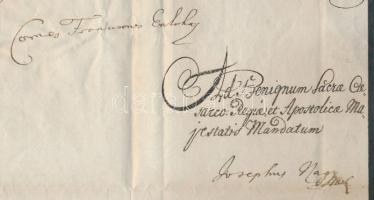 Comes Franciscus
Ad Benignum Sacræ Cæ
sareo Regiæ et Apostolicæ Ma
jestatis Mandatum
Josephus